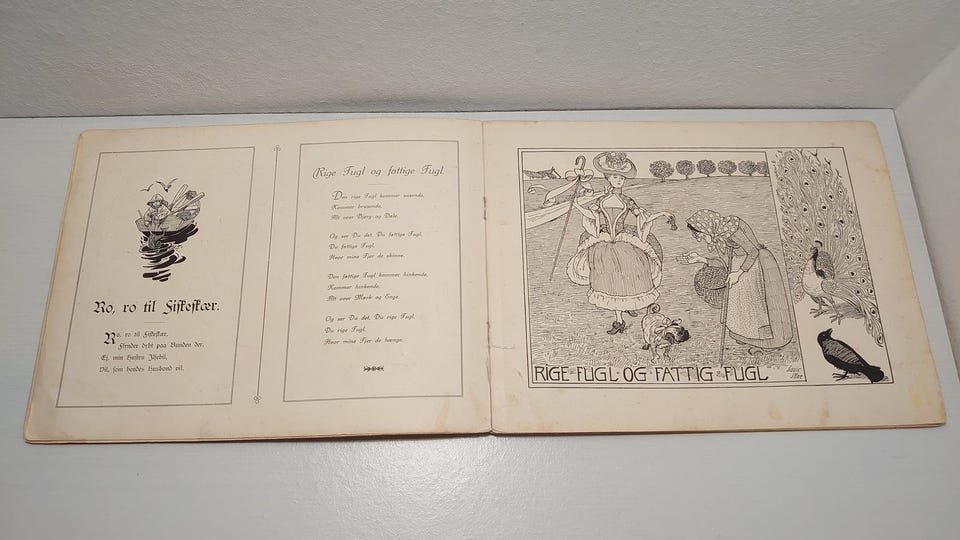 Ro, ro til Fiskeskær.
Ro, ro til Fiskeskær,
Firnder dybt paa Bunden der,
Ej, min Hustru Ilsebil,
Vil, som hendes Husbond vil.
Rige Fugl og fattige Fugl.
Den rige Fugl kommer susende,
Kommer brusende,
Alt over Bjerg og Dale.
Og ser Du det, Du fattige Fugl,
Du fattige Fugl,
Hvor mine Fjer de skinne.
Den fattige Fugl kommer hinkende,
Kommer hinkende,
Alt over Mark og Enge.
Og ser Du det, Du rige Fugl,
Du rige Fugl,
Hvor mine Fjer de hænge.
RIGE FUGL OG FATTIG FUGL